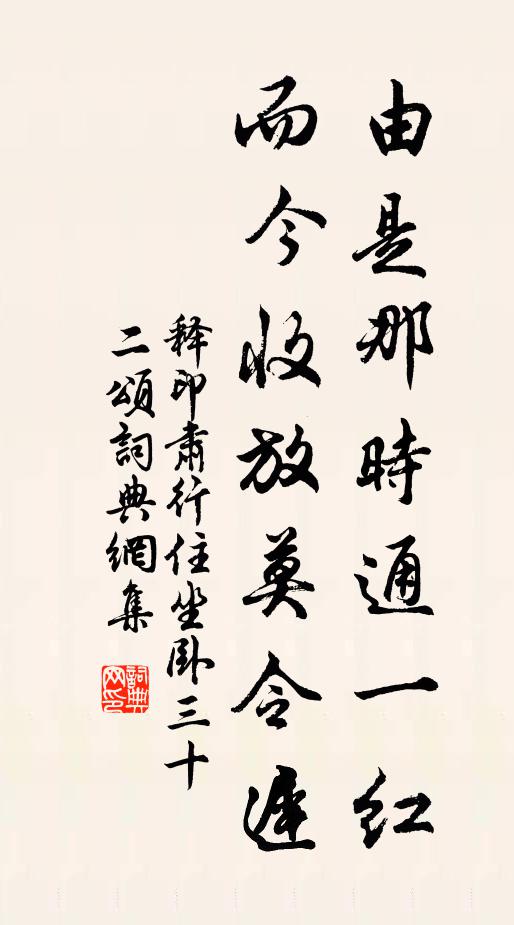 由是那時通一紅
而今收放莫令遲
释印肅行住坐臥三十
二頌詞典網集
詞典网印